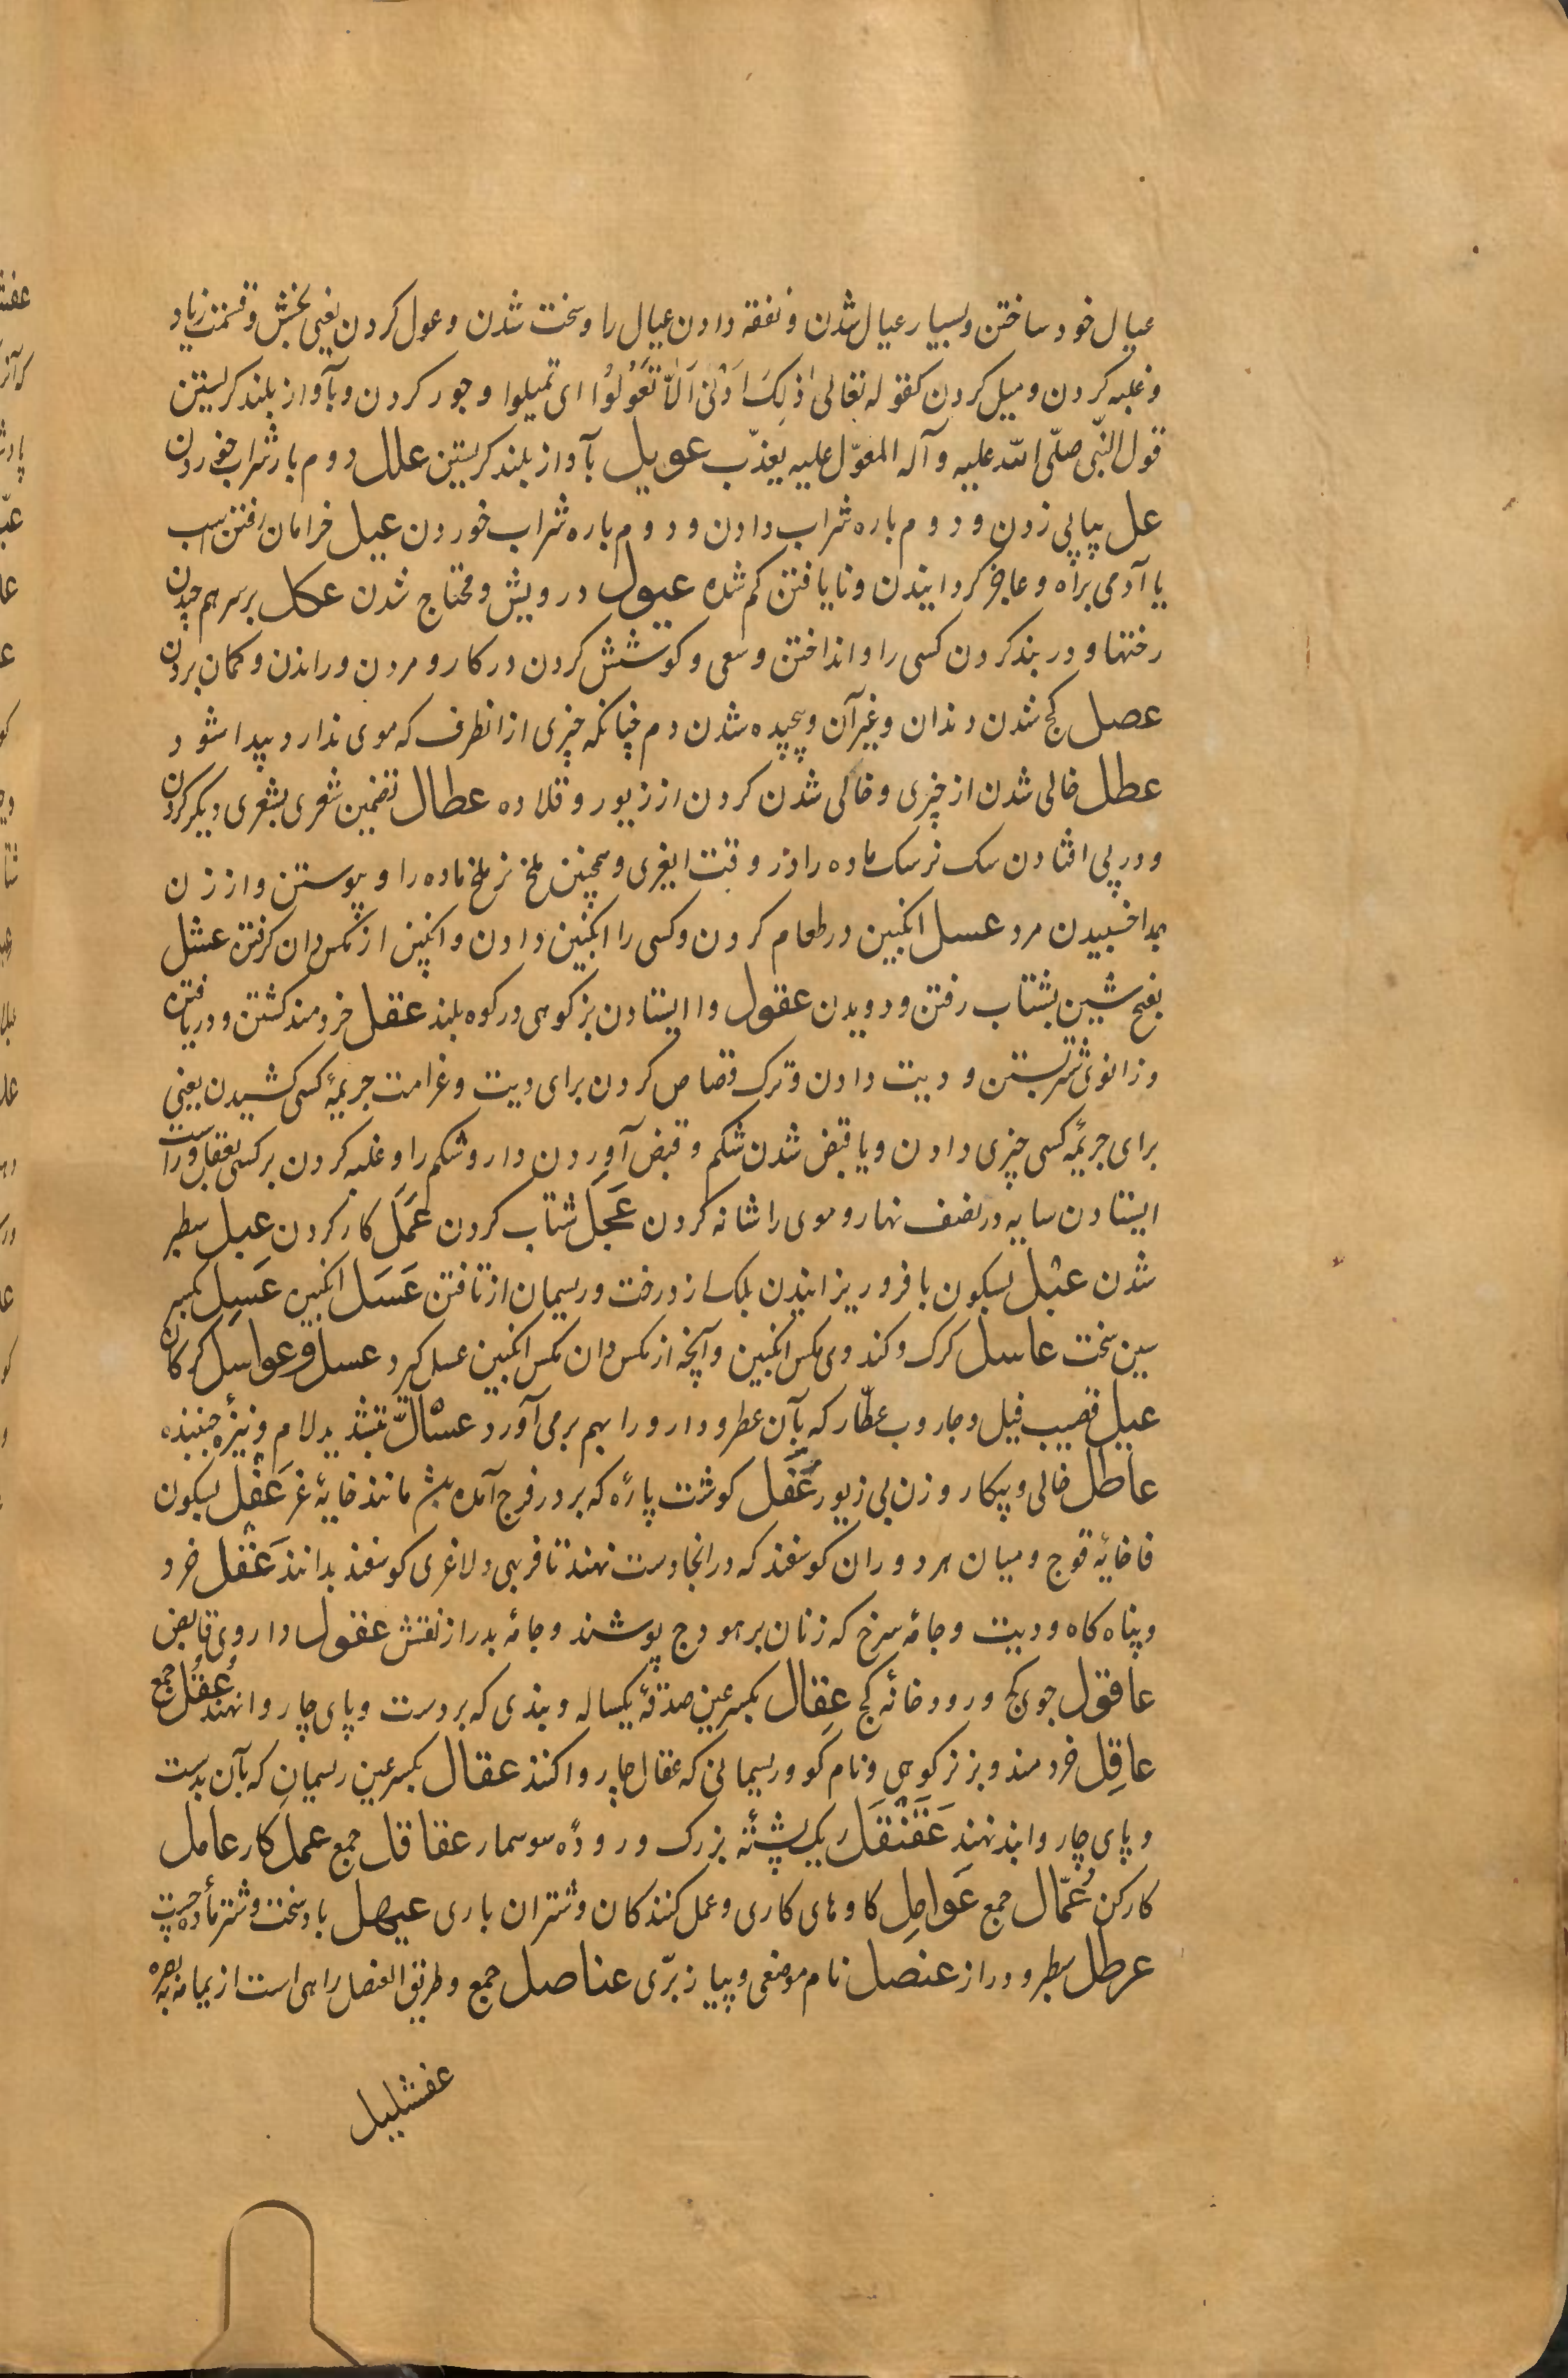 عیال خود ساختن و بسیار عیال شدن و نفقه دادن عیال را و سخت شدن و عول کردن یعنی بخش و قسمت زیاد
و غلبه کردن و میل کردن کقوله تعالی ذٰلِکَ اَدْنیٰ اَلَّا تَعُولُوا ای تمیلوا و جور کردن و بآواز بلند کریستن
قول النّبی صلّی اللّه علیه و آله المعوّل علیه یعذّب عویل بآواز بلند کریستن علل دوم بار شراب خوردن
عل پیاپی زدن و دوم باره شراب دادن و دوم باره شراب خوردن عیل خرامان رفتن اسب
یا آدمی براه و عاجز کردانیدن و نایافتن کم شده عیول درویش و محتاج شدن عکل برسر هم چیدن
رختها و در بند کردن کسی را و انداختن و سعی و کوشش کردن در کار و مردن و راندن و کمان بردن
عصل کج شدن دندان و غیر آن و پیچیده شدن دم چنانکه چیزی از انطرف که موی ندارد پیدا شود
عطل خالی شدن از چیزی و خالی شدن کردن از زیور و قلاده عطال تضمین شعری بشعری دیکر کردن
و در پی افتادن سک نر سک ماده را در وقت ایغری و همچنین ملخ نر ملخ ماده را و پیوستن و از زن
جدا خسبیدن مرد عسل انکبین در طعام کردن و کسی را انکبین دادن و انکبین از مکس دان کرفتن عشل
بفتح شین بشتاب رفتن و دویدن عقول وا ایستادن بز کوهی در کوه بلند عقل خردمند کشتن و دریافتن
و زانوی شتر بستن و دیت دادن و ترک قصاص کردن برای دیت و غرامت جریمهٔ کسی کشیدن یعنی
برای جریمهٔ کسی چیزی دادن و یا قبض شدن شکم و قبض آوردن دارو شکم را و غلبه کردن بر کسی بعقل و راست
ایستادن سایه در نصف نهار و موی را شانه کردن عَجَل شتاب کردن عَمَل کار کردن عبل سطبر
شدن عبْل بسکون با فرو ریزانیدن بلک از درخت و ریسمان از تافتن عَسَل انکبین عَسِل بکسر
سین سخت عاسل کرک و کندوی مکس انکبین و آنچه از مکس دان مکس انکبین عسل کیرد عسل و عواسل کرکان
عیل قصیب فیل و جاروب عطّار که بآن عطر و دارو را بهم برمی آورد عسّالّ بتشدید لام و نیزهٔ جنبنده
عاطل خالی و پیکار و زن بی زیور عَفَل کوشت پاره که بر در فرج آمده باشد مانند خایهٔ غر عَفْل بسکون
فا خایهٔ قوج و میان هر دو ران کوسفند که در انجا دست نهند تا فربهی و لاغری کوسفند بدانند عَقْل خرد
و پناه کاه و دیت و جامهٔ سرخ که زنان بر هودج پوشند و جامهٔ بدراز نقش عقول داروی قابض
عاقول جوی کج و رودخانهٔ کج عِقال بکسر عین صدقهٔ یکساله و بندی که بر دست و پای چاروا نهند عُقُل جمع
عاقِل خردمند و بز نر کوهی و نام کو و ریسمانی که عقال چاروا کنند عقال بکسر عین ریسمان که بآن بدست
و پای چاروا بند نهند عَقَنْقَل ریک پشته بزرک و رودهٔ سوسمار عقاقل جمع عمل کار عامل
کارکن عُمّال جمع عَوامِل کاوهای کاری و عمل کنندکان و شتران باری عیهل باد سخت و شتر مادهٔ چست
عرطل سطبر و دراز عنصل نام موضعی و پیاز برّی عناصل جمع و طریق العنصل راهی است از یمامه به بصره
عفشلیل